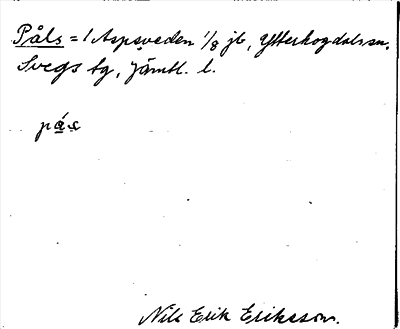 Påls = 1 Aspsveden 1/8 jb, Ytterhogdals sn.
Svegs tg, Jämtl. l.
pás
Nils Erik Eriksson.